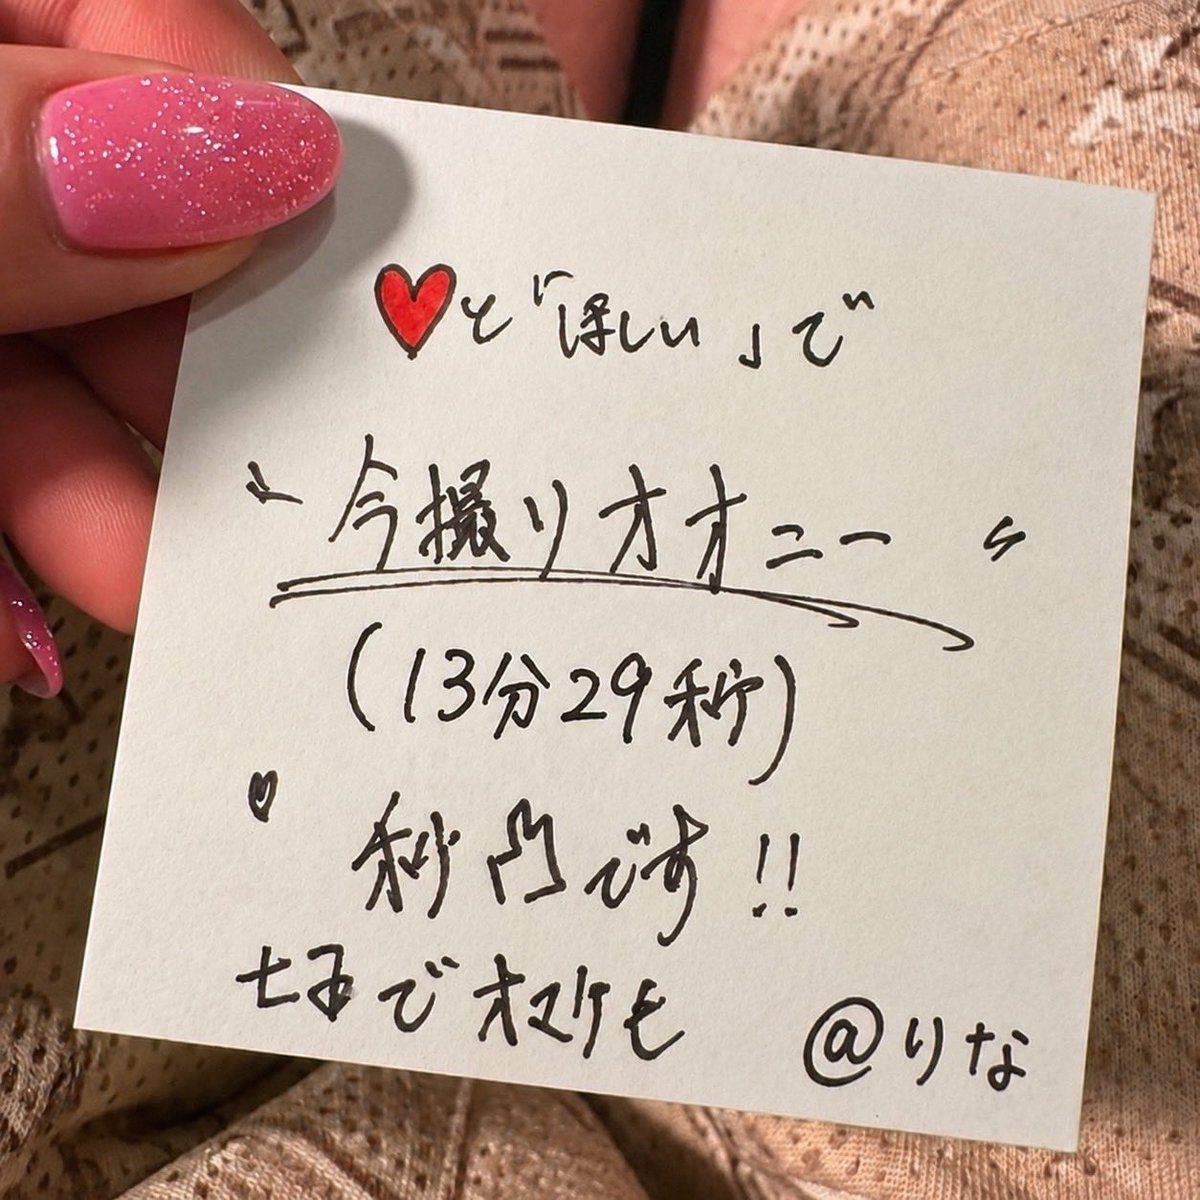 ❤と「ほしい」で
今撮りオナニー
(13分29秒)
秒凸です!!
でオマケも
@りな